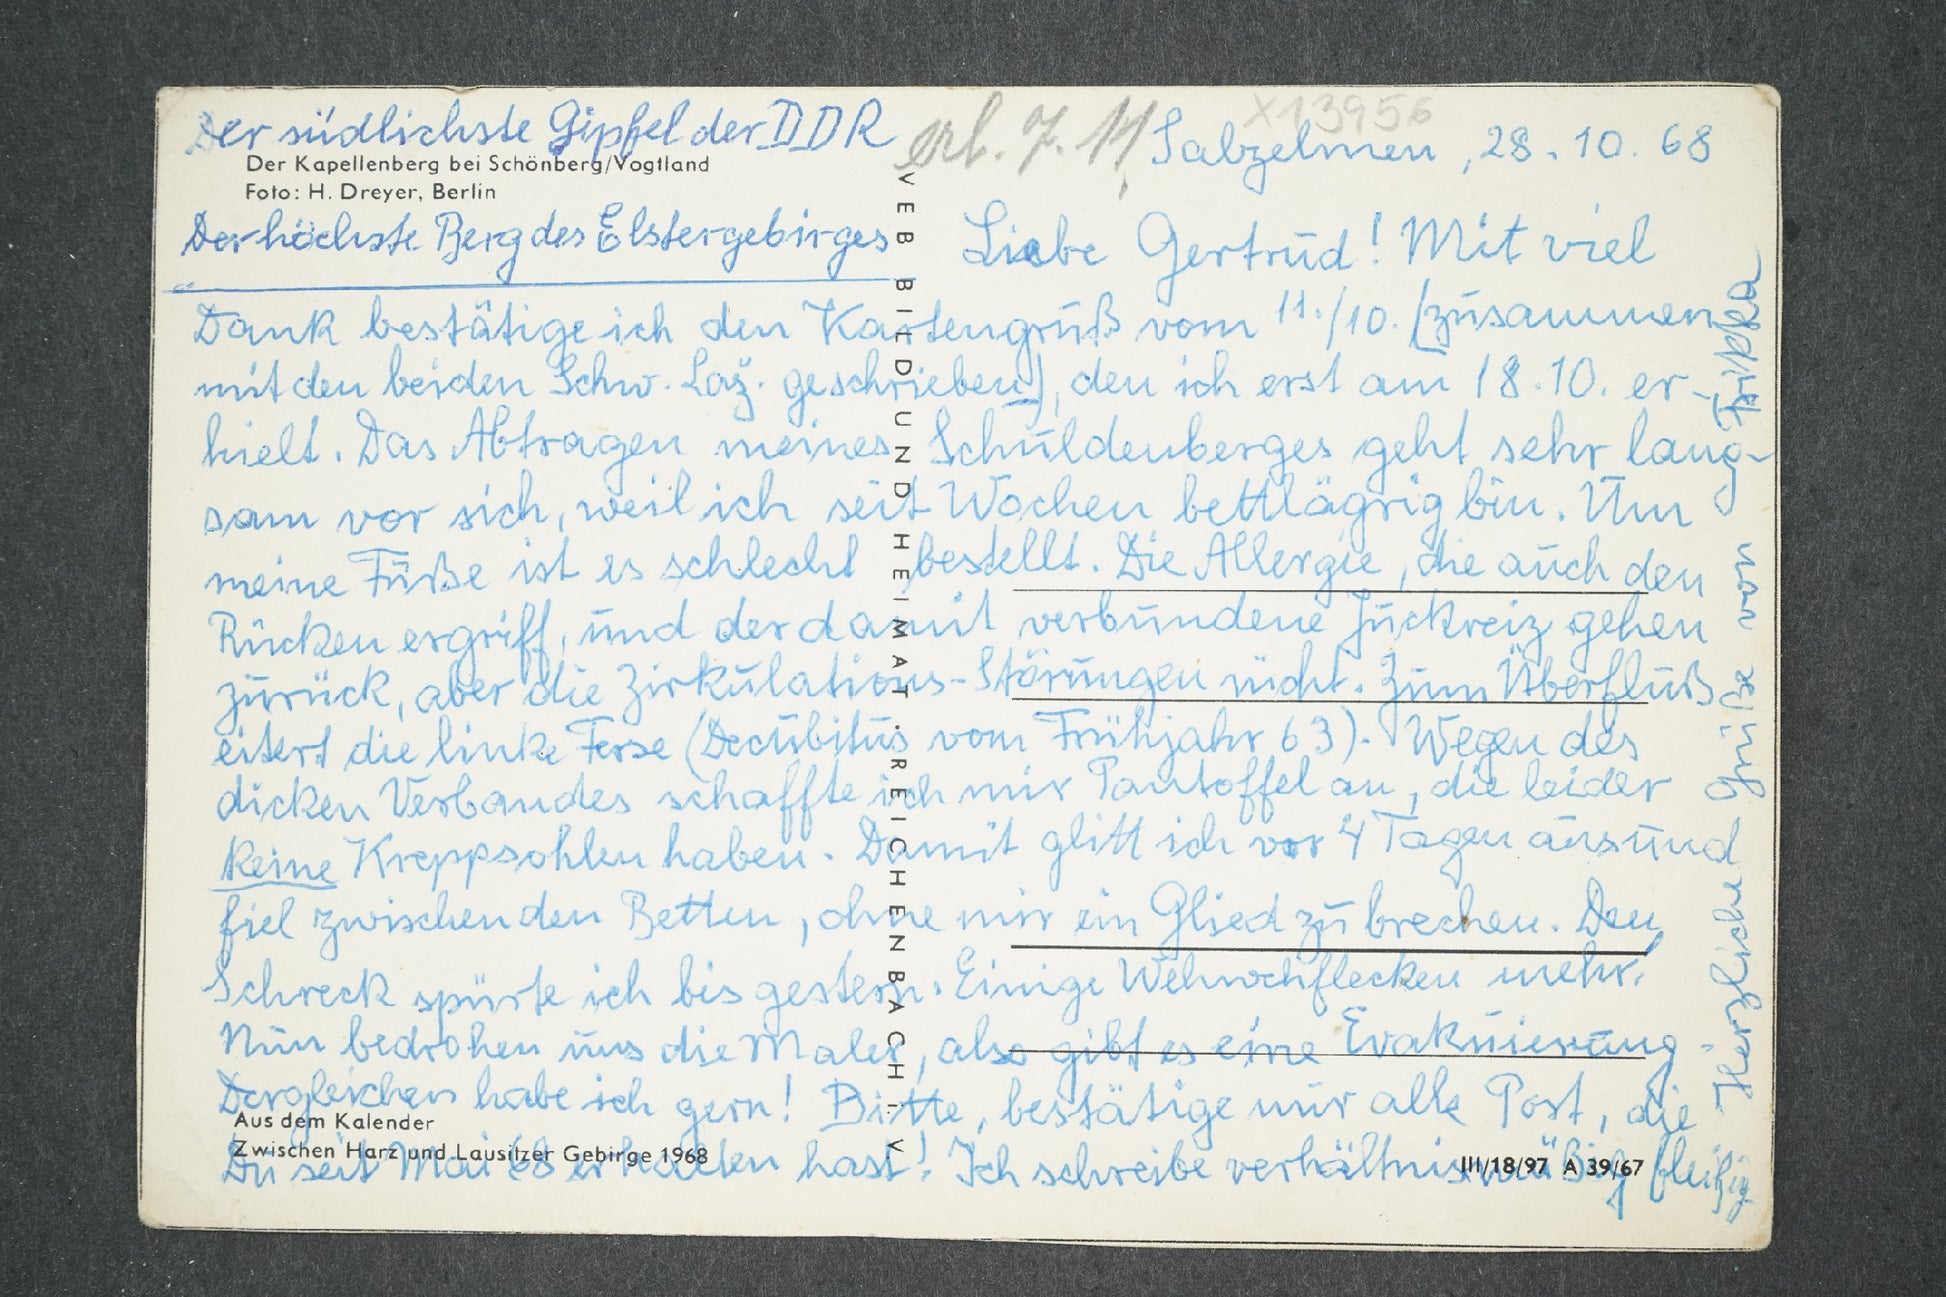 Der südlichste Gipfel der DDR
Der Kapellenberg bei Schönberg/Vogtland
Foto: H. Dreyer, Berlin
Der höchste Berg des Elstergebirges
erh. 7. 11.
X13956
Salzelmen, 28. 10. 68
Liebe Gertrud! Mit viel
Dank bestätige ich den Kartengruß vom 11./10. (zusammen
mit den beiden Schw. geschrieben), den ich erst am 18.10. er-
hielt. Das Abtragen meines Schuldenberges geht sehr lang-
sam vor sich, weil ich seit Wochen bettlägrig bin. Um
meine Füße ist es schlecht bestellt. Die Allergie, die auch den
Rücken ergriff, und der damit verbundene Juckreiz gehen
zurück, aber die Zirkulations-Störungen nicht. Zum Überfluß
eitert die linke Ferse (Decubitus vom Frühjahr 63). Wegen des
dicken Verbandes schaffte ich mir Pantoffel an, die leider
keine Kreppsohlen haben. Damit glitt ich vor 4 Tagen aus und
fiel zwischen den Betten, ohne mir ein Glied zu brechen. Den
Schreck spürte ich bis gestern. Einige Wehwehflecken mehr.
Nun bedrohen uns die Maler, also gibt es eine Evakuierung
Dergleichen habe ich gern! Bitte, bestätige mir alle Post, die
Du seit Mai 68 erhalten hast! Ich schreibe verhältnismäßig fleißig
Herzliche Grüße von Frikka
VEB BILD UND HEIMAT REICHENBACH I. V.
Aus dem Kalender
Zwischen Harz und Lausitzer Gebirge 1968
III/18/97 A 39/67